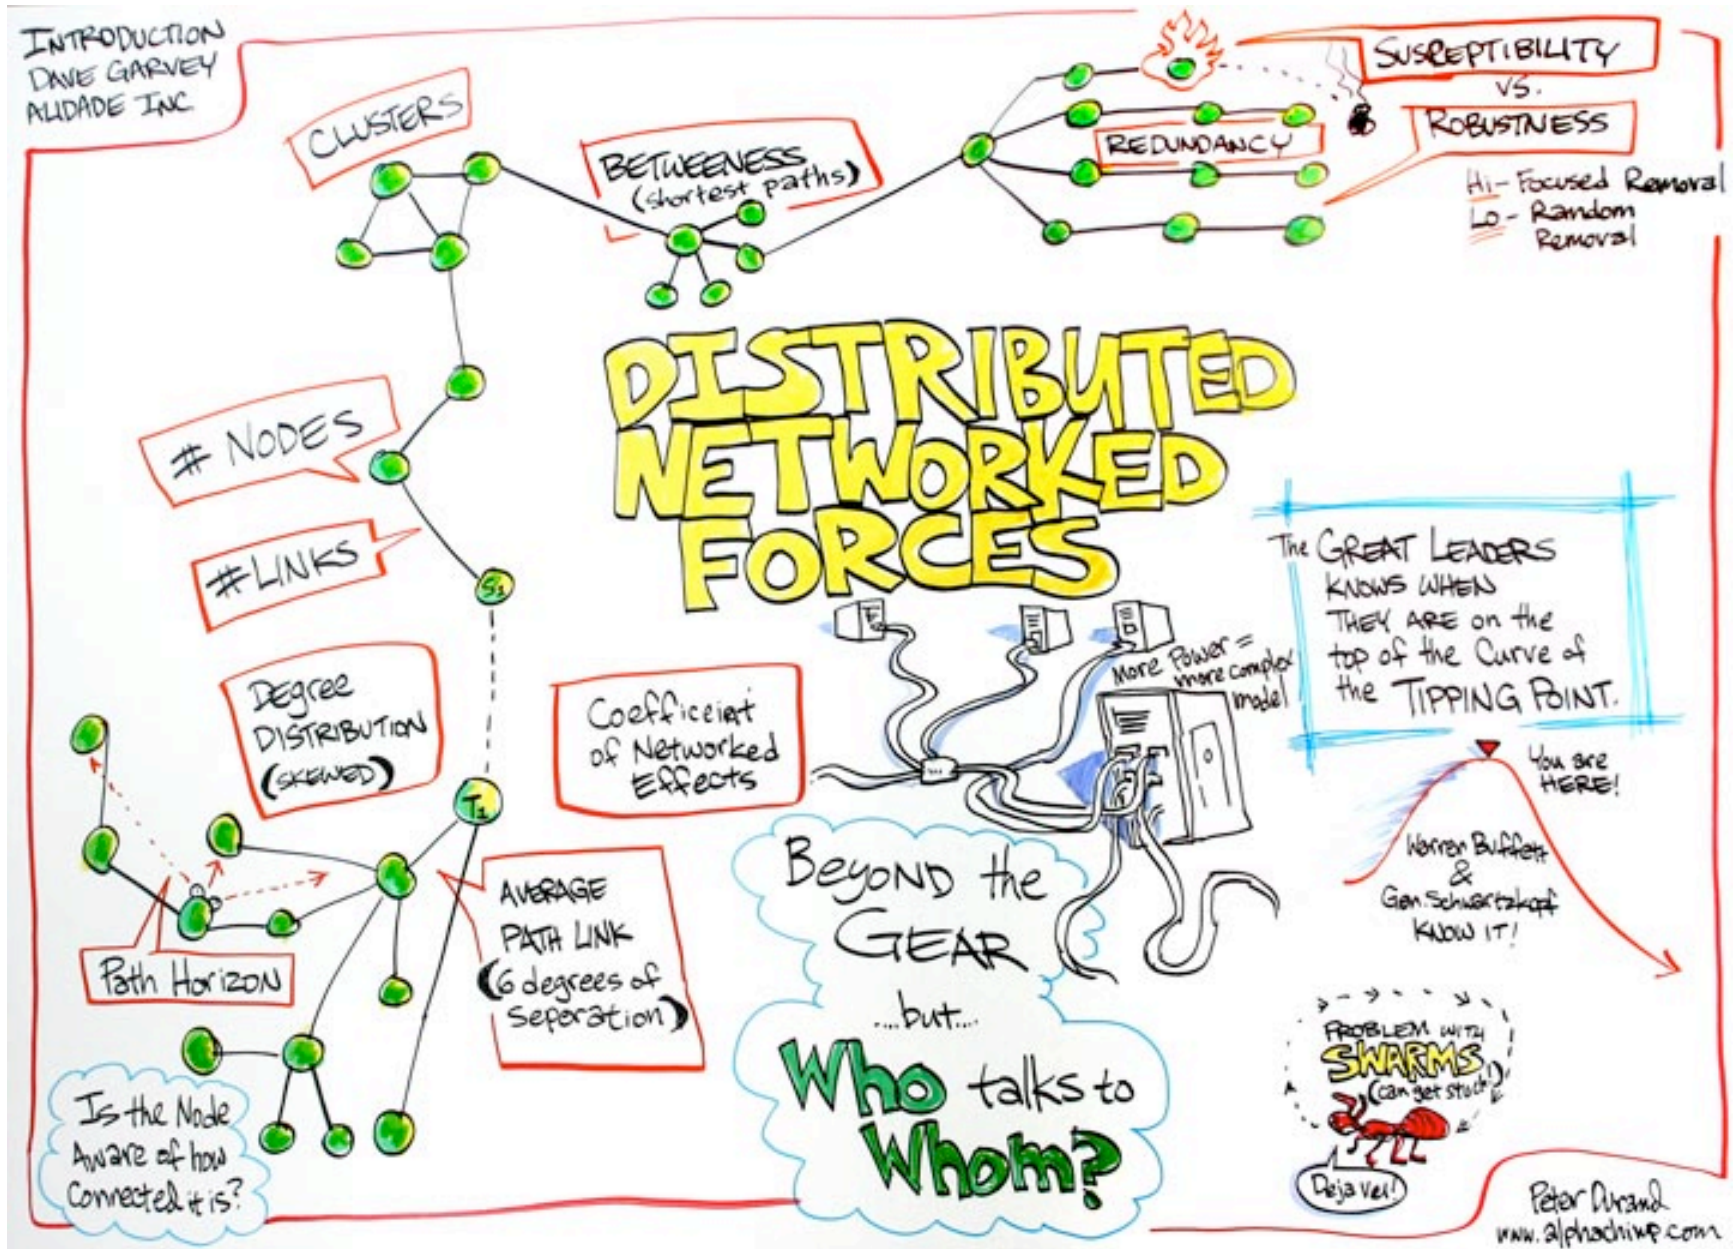 INTRODUCTION
DAVE GARVEY
ALIDADE INC
CLUSTERS
BETWEENESS
(shortest paths)
REDUNDANCY
SUSCEPTIBILITY
VS.
ROBUSTNESS
Hi - Focused Removal
Lo - Random
Removal
DISTRIBUTED
NETWORKED
FORCES
# NODES
# LINKS
S1
DEGREE
DISTRIBUTION
(SKEWED)
T1
Coefficeint
of Networked
Effects
More Power =
more complex
model
The GREAT LEADERS
KNOWS WHEN
THEY ARE on the
top of the Curve of
the TIPPING POINT.
You are
HERE!
Warren Buffett
&
Gen. Schwartzkopf
KNOW IT!
AVERAGE
PATH LINK
(6 degrees of
Seporation)
Path Horizon
Beyond the
GEAR
....but....
Who talks to
Whom?
Is the Node
Aware of how
Connected it is?
PROBLEM WITH
SWARMS
(can get stuck!)
Deja vu!
Peter Durand
www.alphachimp.com